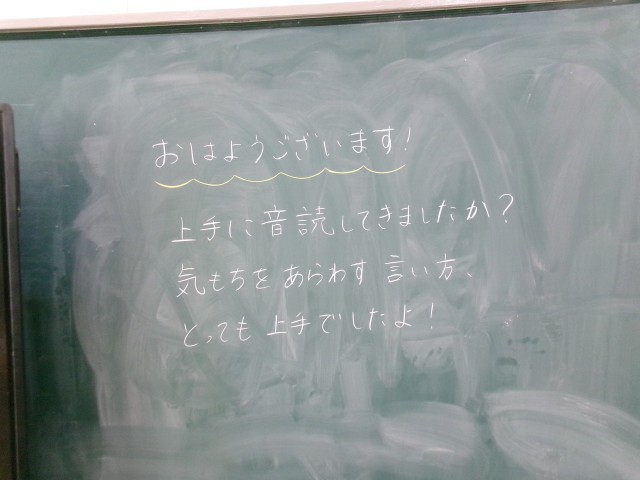 おはようございます!
上手に音読してきましたか?
気もちをあらわす言い方、
とっても上手でしたよ!